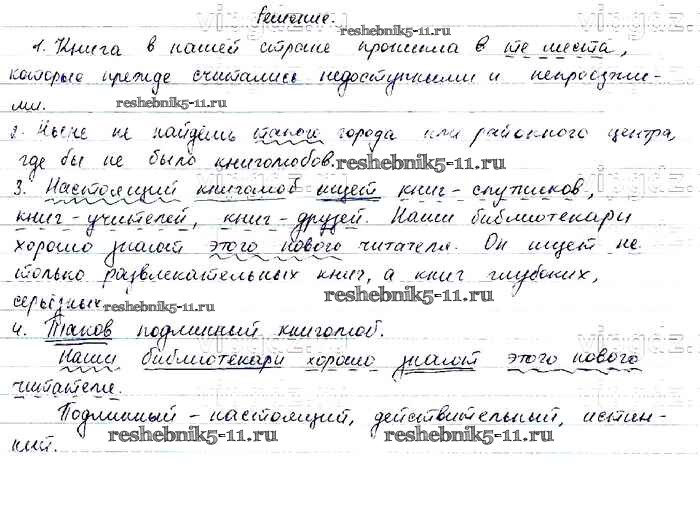 Решение.
1. Книга в нашей стране проникла в те места,
которые прежде считались недоступными и непроезжи-
ми.
reshebnik5-11.ru
2. Ныне не найдёшь такого города или районного центра,
где бы не было книголюбов.
reshebnik5-11.ru
3. Настоящий книголюб ищет книг-спутников,
книг-учителей, книг-друзей. Наши библиотекари
хорошо знают этого нового читателя. Он ищет не
только развлекательных книг, а книг глубоких,
серьёзных.
reshebnik5-11.ru
4. Таков подлинный книголюб.
Наши библиотекари хорошо знают этого нового
читателя.
Подлинный - настоящий, действительный, истин-
ный.
reshebnik5-11.ru
reshebnik5-11.ru
reshebnik5-11.ru